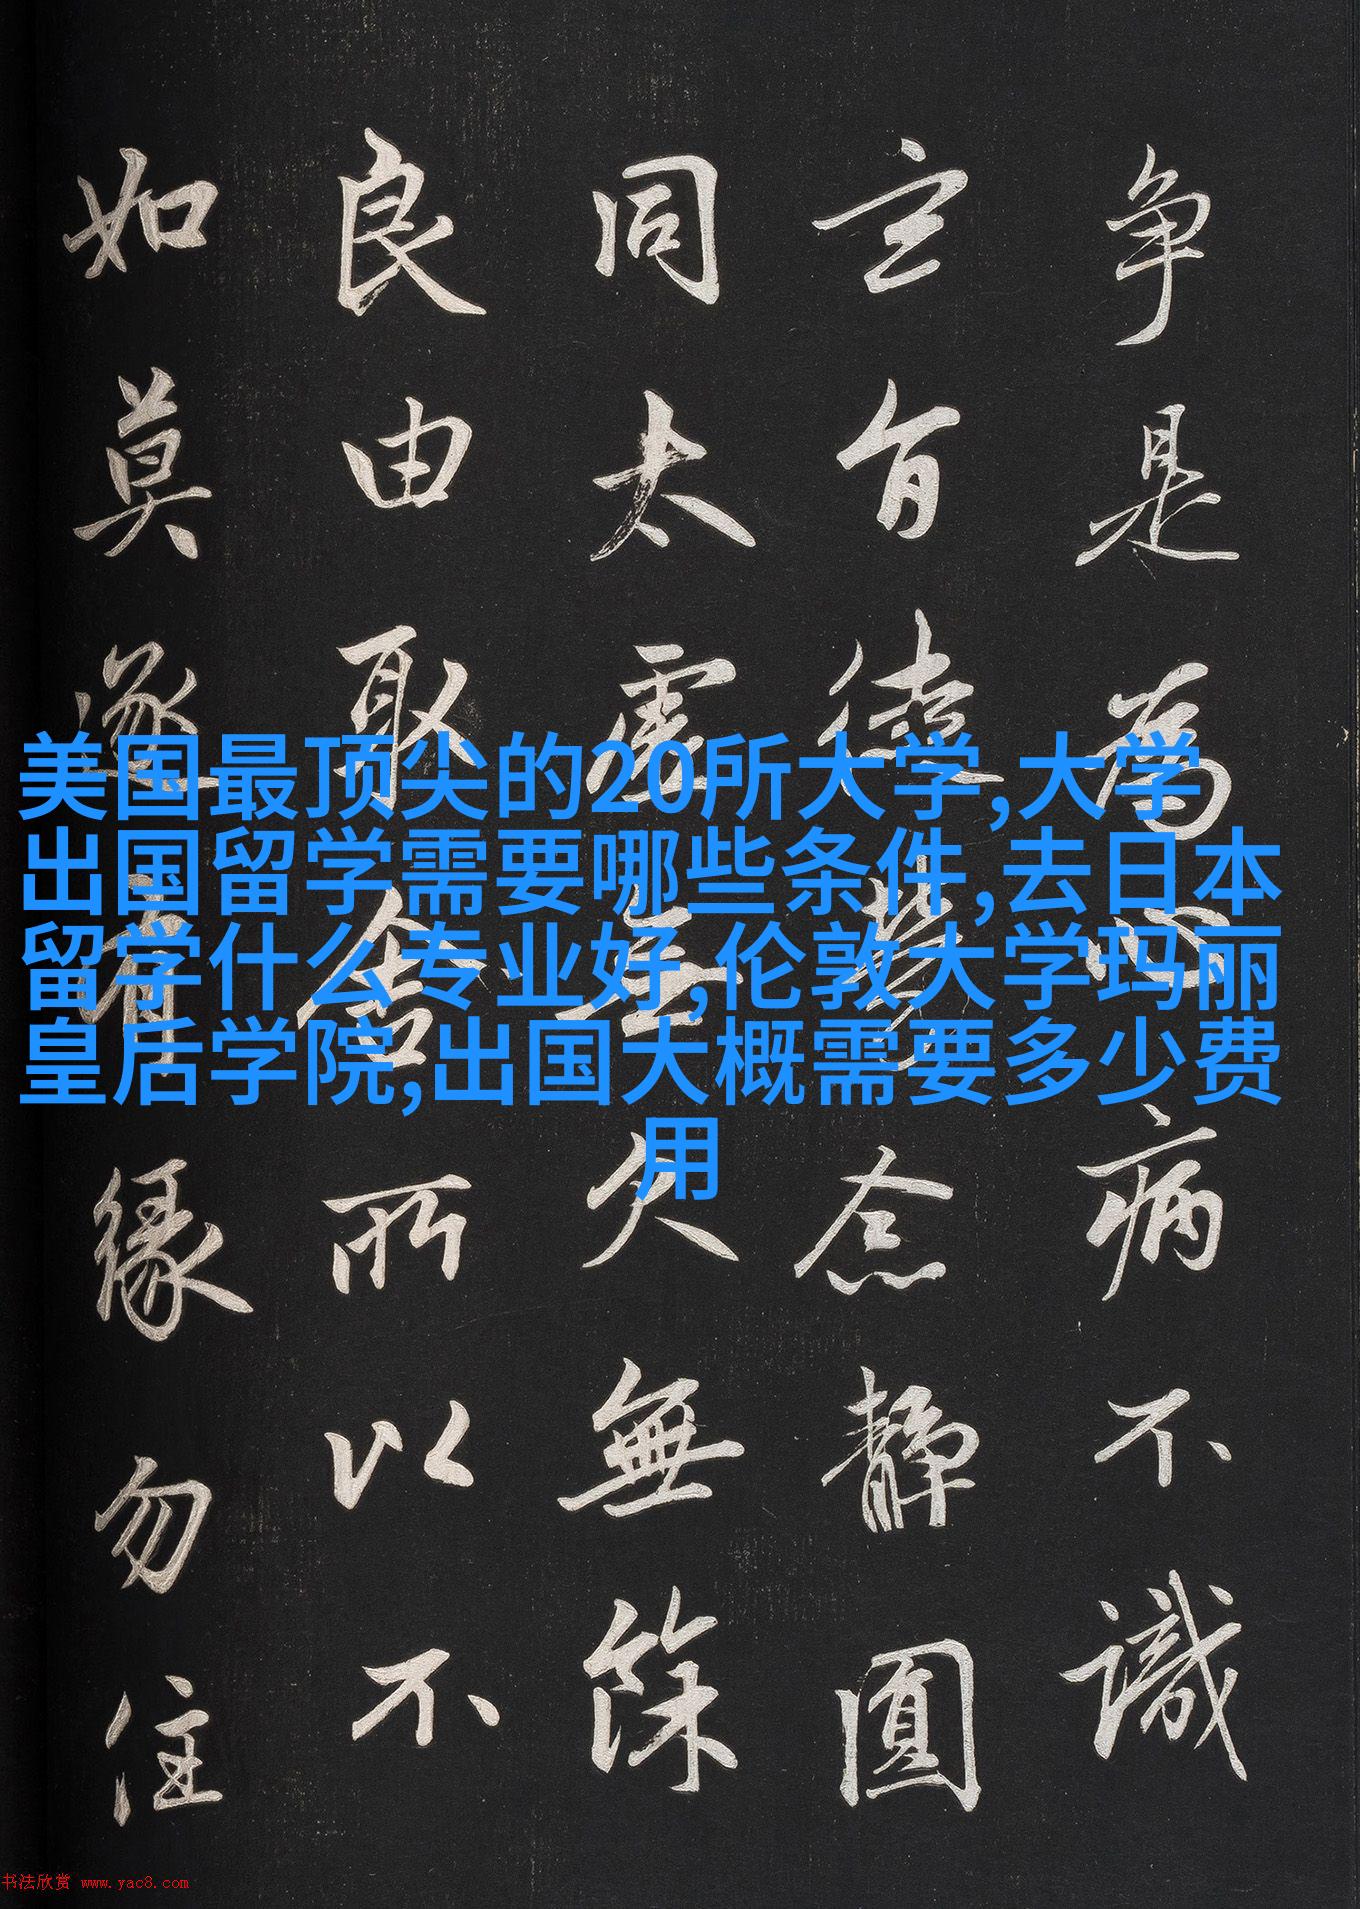 争是為心病不識
玄旨徒勞念静圓
同太虚無欠無餘
良由取舍所以不
如莫逐有緣勿住
美国最顶尖的20所大学,大学
出国留学需要哪些条件,去日本
留学什么专业好,伦敦大学玛丽
皇后学院,出国大概需要多少费
用
书法欣赏 www.yac8.com